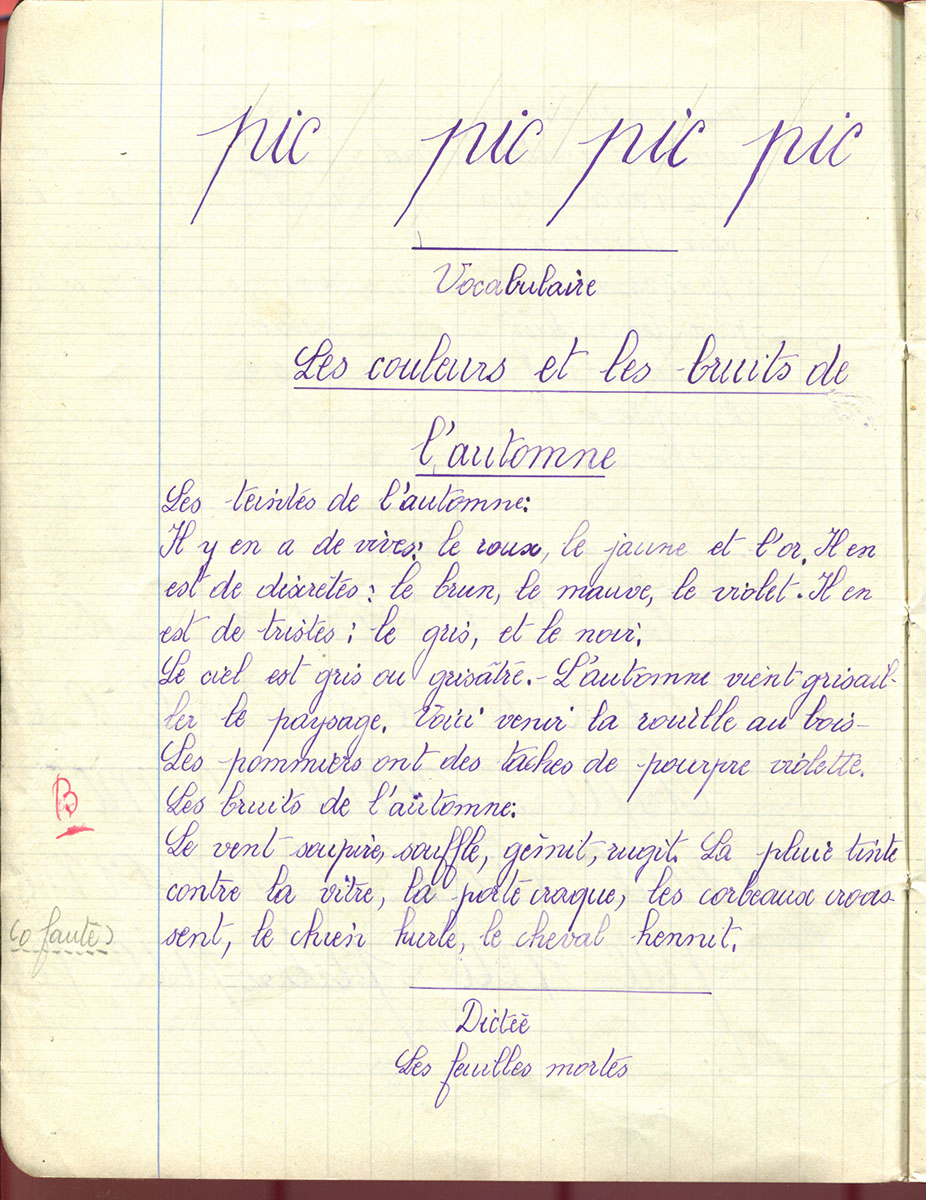 pic pic pic pic
Vocabulaire
Les couleurs et les bruits de
l'automne
Les teintes de l'automne:
Il y en a de vives: le roux, le jaune et l'or. Il en
est de discrètes: le brun, le mauve, le violet. Il en
est de tristes: le gris, et le noir.
Le ciel est gris ou grisâtre.- L'automne vient grisail-
ler le paysage. Voici venir la rouille au bois-
Les pommiers ont des taches de pourpre violette.
B
Les bruits de l'automne:
Le vent soupire, souffle, gémit, rugit. La pluie tinte
contre la vitre, la porte craque, les corbeaux croas-
(0 faute)
sent, le chien hurle, le cheval hennit.
Dictée
Les feuilles mortes